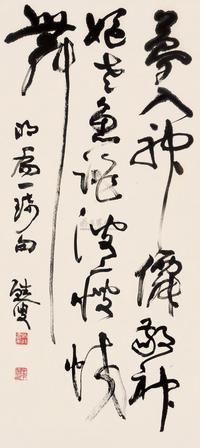 夢入神僊教神
嫗老魚跳波瘦蛟
舞
一 句